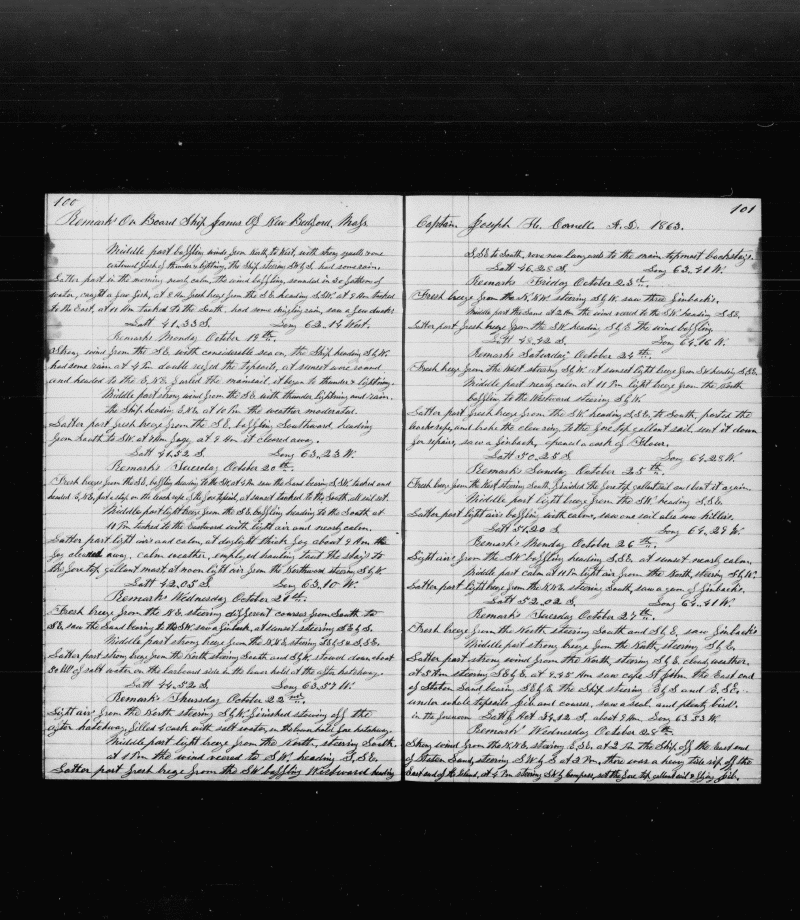 100
Remarks On Board Ship James Of New Bedford, Mass
Middle part baffling winds from North to West, with strong squalls some
flash of thunder & lightning, the Ship steering SW by S. had some rain.
Latter part in the morning nearly calm, the wind baffling, sounded in 30 fathom of
water, caught a few fish, at 8 Am fresh breeze from the S.E. heading S.S.W. at 9 Am tacked
to the East, at 11 Am tacked to the South, had some drizzling rain, saw a few ducks
Latt 41.33 S. Long 63.14 West.
Remarks Monday October 19th.
Strong wind from the S.E. with considerable sea on, the Ship heading S by W.
had some rain at 4 Pm double reefed the topsails, at sunset wore round
and headed to the E.N.E. furled the mainsail, it began to thunder & lightning.
Middle part strong wind from the S.E. with thunder lightning and rain.
the Ship heading E.N.E. at 10 Pm the weather moderated.
Latter part fresh breeze from the S.E. baffling Southward heading
from South to S.W. at 7 Am foggy, at 9 Am it cleared away.
Latt 41.52 S. Long 63.23 W.
Remarks Tuesday October 20th.
Fresh breeze from the S.E. baffling heading to the S.W. at 4 Pm saw the Land bearing S.S.W. tacked and
headed E.N.E. put a strop on the block rope of the fore topsail, at sunset tacked to the South, all sail set.
Middle part light breeze from the S.E. baffling heading to the South at
11 Pm tacked to the Eastward with light air and nearly calm.
Latter part light air and calm, at daylight thick fog about 9 Am the
fog cleared away, calm weather, employed hauling taut the stays to
the fore top gallant mast, at noon light air from the Northward steering S by W.
Latt 42.05 S. Long 63.10 W.
Remarks Wednesday October 21st.
Fresh breeze from the N.E. steering different courses from South to
S.E. saw the Land bearing to the S.W. saw a finback, at sunset steering S.E. by S.
Middle part strong breeze from the N.N.E. steering S.E. by S & S.S.E.
Latter part strong breeze from the North steering South and S by W. stowed down about
50 bbl of salt water on the larboard side in the lower hold at the after hatchway.
Latt 44.52 S. Long 63.57 W.
Remarks Thursday October 22nd.
Light airs from the North steering S by W. finished stowing off the
after hatchway, filled 4 cask with salt water, in the lower hold fore hatchway.
Middle part light breeze from the North, steering South,
at 1 Pm the wind veered to S.W. heading S.S.E.
Latter part fresh breeze from the S.W. baffling Westward heading
101
Captain Joseph H. Cornell A.D. 1863.
S.S.E. to South, rove new lanyards to the main topmost backstays.
Latt 46.28 S. Long 63.41 W.
Remarks Friday October 23rd.
Fresh breeze from the N.N.W. steering S by W. saw three finbacks.
Middle part the same at 2 Am the wind veered to the S.W. heading S.S.E.
Latter part fresh breeze from the S.W. heading S by E. the wind baffling
Latt 48.42 S. Long 64.16 W.
Remarks Saturday October 24th.
Fresh breeze from the West steering S by W. at sunset light breeze from S.W. heading S.S.E.
Middle part nearly calm at 11 Pm light breeze from the North
baffling to the Westward steering S by W.
Latter part fresh breeze from the S.W. heading S.S.E. to South, parted the
buntrope and broke the clew ring to the fore top gallant sail, sent it down
for repairs, saw a finback, opened a cask of Flour.
Latt 50.25 S. Long 64.28 W.
Remarks Sunday October 25th.
Fresh breeze from the West steering South, finished the fore top gallant sail and bent it again.
Middle part light breeze from the S.W. heading S.S.E.
Latter part light airs baffling with calms, saw one sail also saw killers.
Latt 51.20 S. Long 64.29 W.
Remarks Monday October 26th.
Light airs from the S.W. baffling heading S.S.E. at sunset nearly calm.
Middle part calm at 11 Pm light air from the North, steering S by W.
Latter part light breeze from the N.N.E. steering South, saw a gam of finbacks.
Latt 52.02 S. Long 64.41 W.
Remarks Tuesday October 27th.
Fresh breeze from the North steering South and S by E, saw finbacks
Middle part strong breeze from the North, steering S by E.
Latter part strong wind from the North, steering S by E. cloudy weather.
at 5 Am steering S.E. by E. at 9.45 Am saw cape St John the East end
of Staten Land bearing S.E. by E. the Ship steering E by S and E.S.E.
under whole topsails jib and courses, saw a seal and plenty birds
in the forenoon Latt by Acct 54.12 S. about 9 Am. Long 63.33 W.
Remarks Wednesday October 28th.
Strong wind from the N.N.E. steering E.S.E. at 2 Pm the Ship off the East end
of Staten Land, steering S.W. by S at 3 Pm, there was a heavy tide rip off the
East end of the Island, at 4 Pm steering S.W. by compass, set the fore top gallant sail & flying jib.